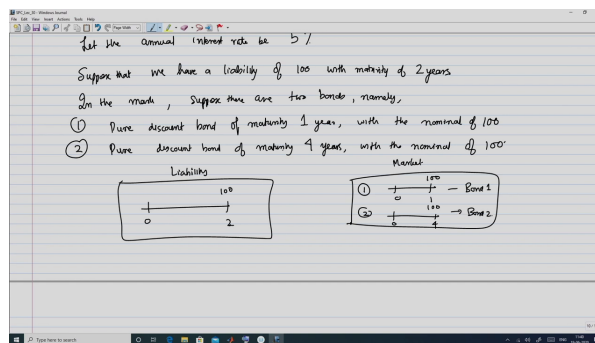 SPC_Lec_30 - Windows Journal
File Edit View Insert Actions Tools Help
Page Width
Let the annual interest rate be 5%
Suppose that we have a liability of 100 with maturity of 2 years
In the mark , suppose there are two bonds, namely,
① Pure discount bond of maturity 1 year, with the nominal of 100
② Pure discount bond of maturity 4 years, with the nominal of 100.
Liability
100
0 2
Market
① 100 — Bond 1
0 1
② 100 → Bond 2
0 4
Type here to search
ENG 11:40